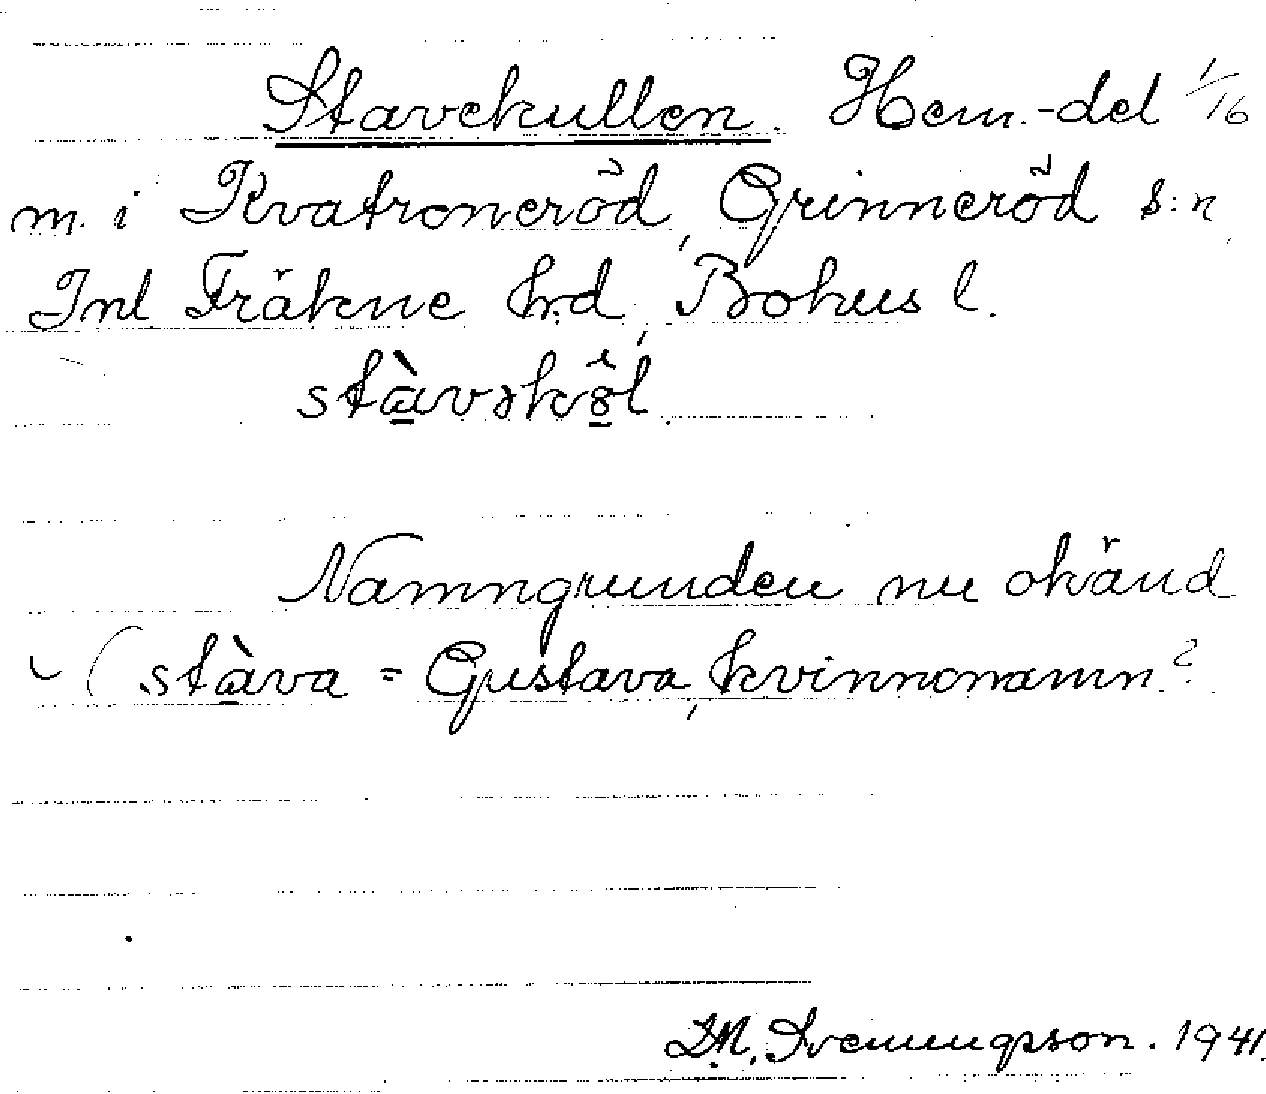 Stavekullen. Hem.-del 1/16
m. i Kvatroneröd, Grinneröd s:n,
Inl. Fräkne hd, Bohus l.
stàvəkôl.
Namngrunden nu okänd
(stàva = Gustava, kvinnonamn?
D.M. Svenungsson. 1941.